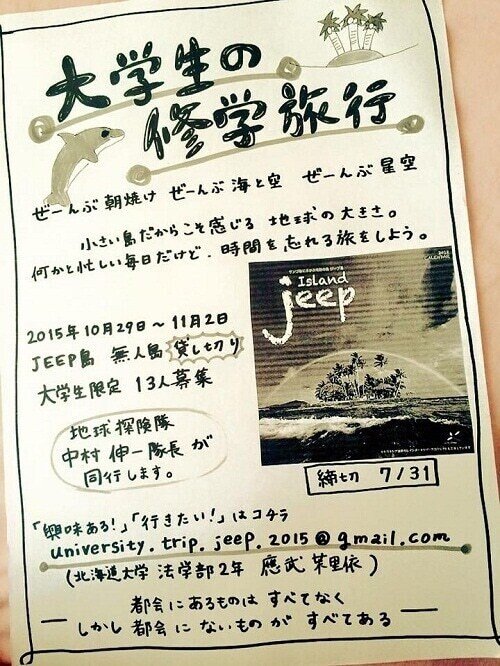 大学生の
修学旅行
ぜーんぶ朝焼け ぜーんぶ海と空 ぜーんぶ星空
小さい島だからこそ感じる 地球の大きさ。
何かと忙しい毎日だけど、時間を忘れる旅をしよう。
2015年10月29日〜11月2日
JEEP島 無人島 貸し切り
大学生限定 13人募集
地球探険隊
中村 伸一隊長が
同行します。
CALENDAR
Island
jeep
締切 7/31
「興味ある!」「行きたい!」はコチラ
university.trip.jeep.2015@gmail.com
(北海道大学 法学部2年 應武 茉里依)
都会にあるものは すべてなく
しかし 都会に ないものが すべてある